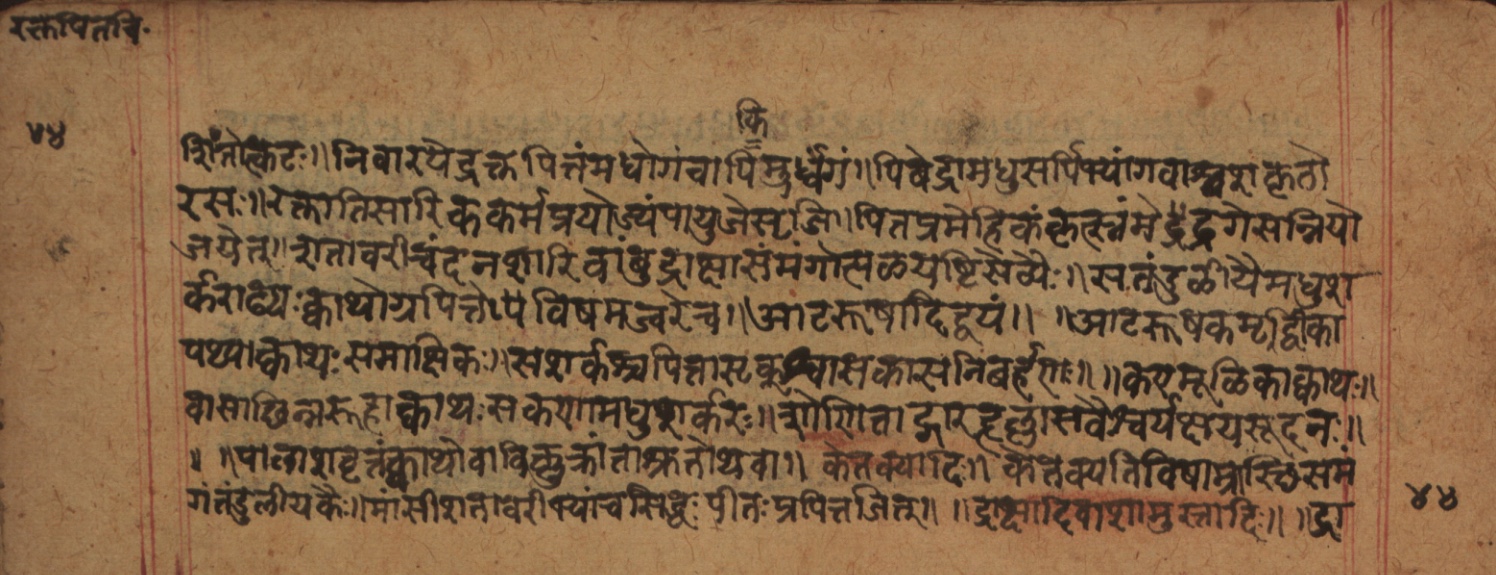 रक्तपित्तचि.
४४
कि
निवारयेद्रक्तपित्तंमधोगंचापिमुर्ध्वगं॥पिबेद्वामधुसर्पिर्भ्यांगवाश्वशकृतो
रसः॥रक्तातिसारिककर्मप्रयोज्यंपायुजेसृजि॥पित्तप्रमेहिकंकृत्स्नंमेढ्रगेसन्नियो
जयेत्॥शतावरीचंदनशारिवांबुद्राक्षासमंगोत्पळयष्टिसेव्यैः॥सतंदुळीयैमधुश
र्कराढ्यःक्वाथोस्रपित्तेपिविषमज्वरेच॥आटरूषादिद्वयं॥ ॥आटरूषकमृद्वीका
पथ्याक्वाथःसमाक्षिकः॥सशर्करास्रपित्तास्रकश्वासकासनिबर्हणः॥ ॥कणमूळिकाक्वाथः॥
वासाछिन्नरुहाक्वाथःसकणामधुशर्करः॥शोणितोद्गारहृल्लासवैश्वर्यक्षयसूदनः॥
॥ ॥पालाशवृंतक्वाथोवा केतक्यादिः॥ केतक्यतिविषा समं
गतंदुलीयकैः॥मांसीशतावरीभ्यांचसिद्धःपीतःप्रपित्तजित्॥ ॥द्राक्षादिवाशामुस्तादिः॥ ॥द्रा
४४